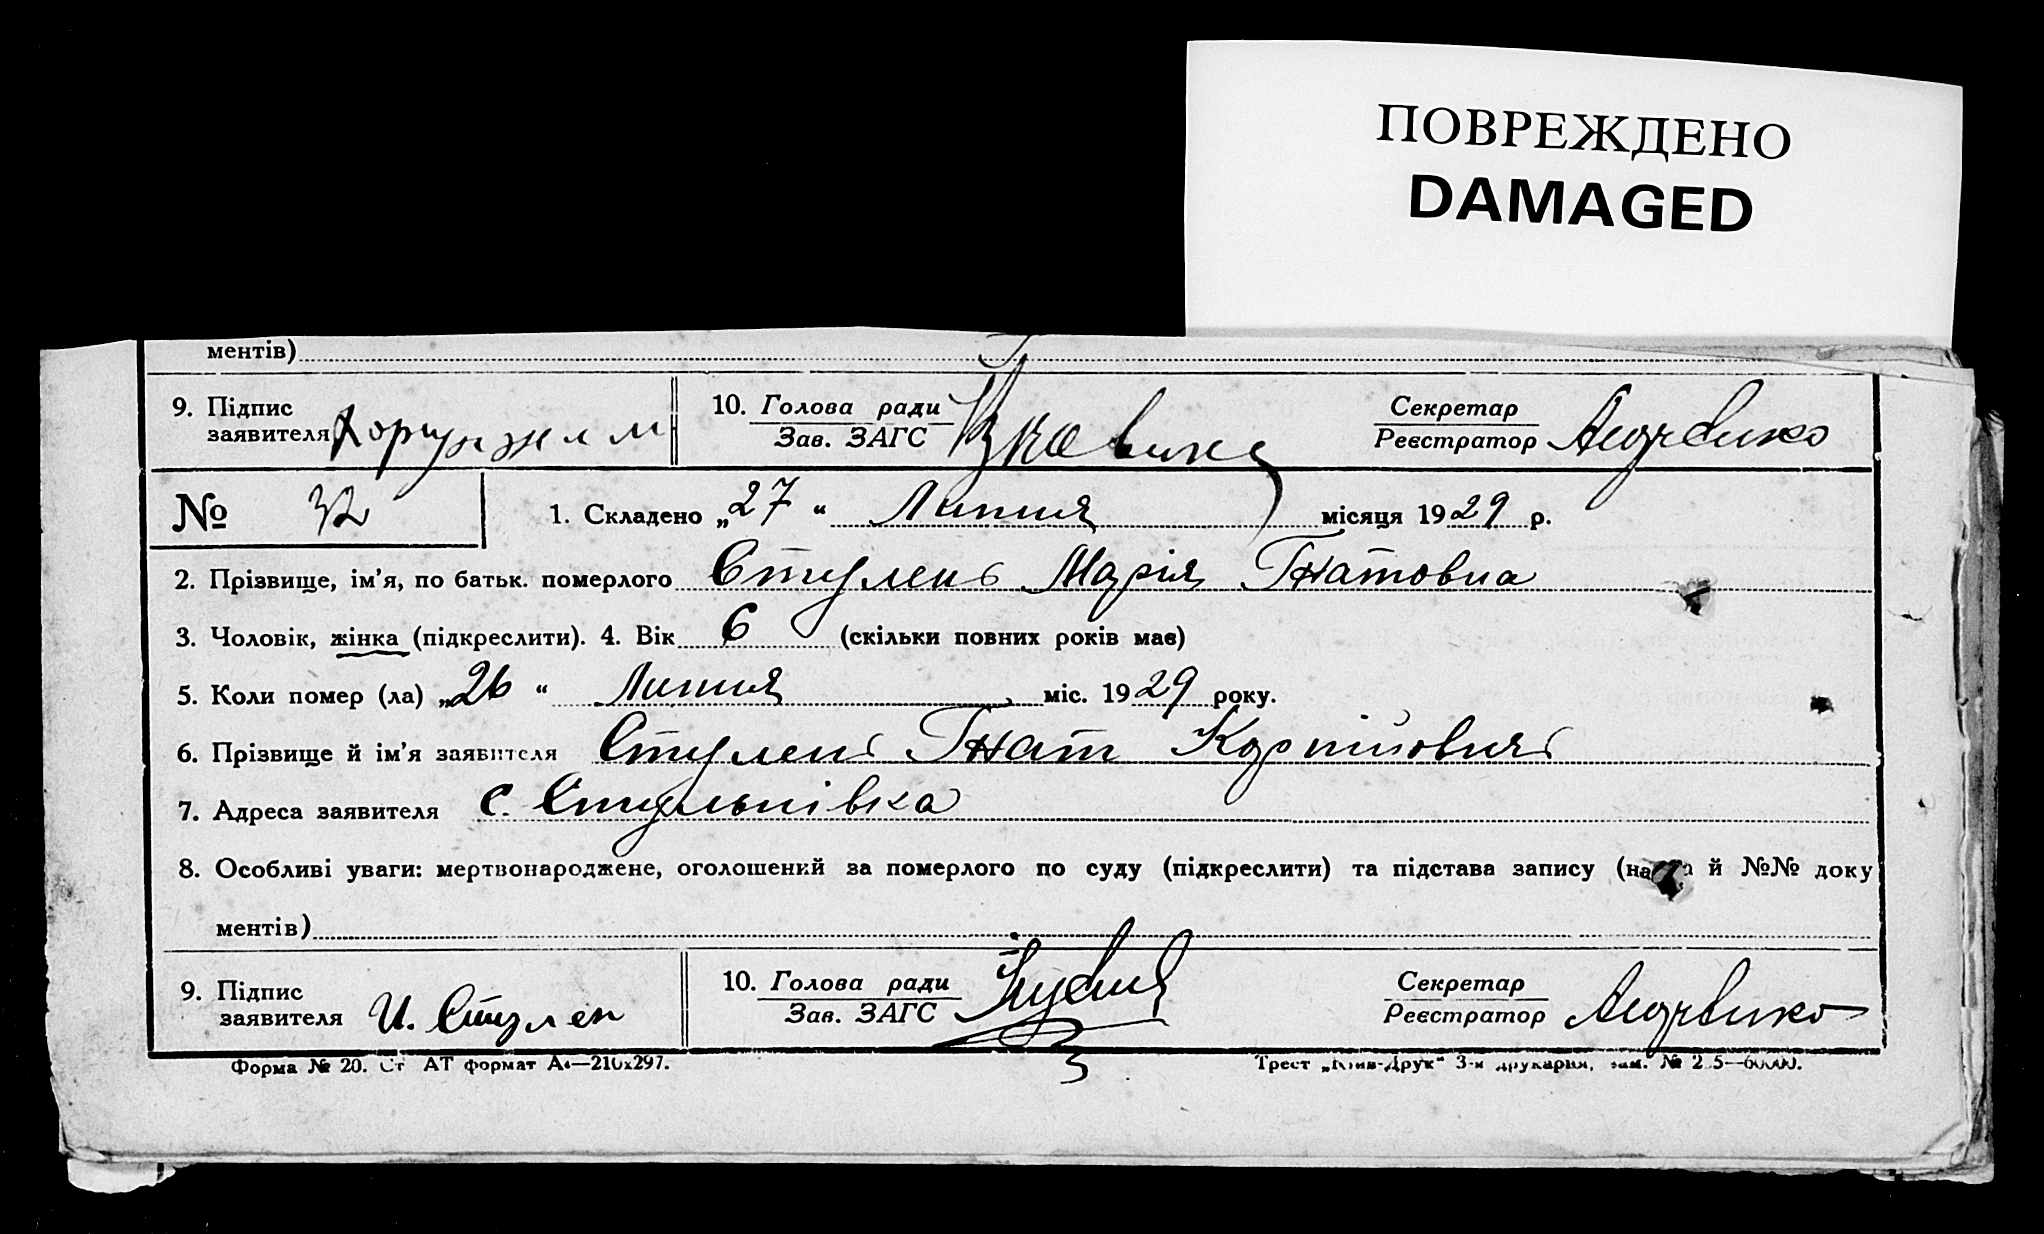 ПОВРЕЖДЕНО
DAMAGED
ментів)
9. Підпис заявителя
10. Голова ради Зав. ЗАГС
Секретар Реєстратор
№ 32
1. Складено „27“ Липня місяця 1929 р.
2. Прізвище, ім'я, по батьк. померлого Стулень Марія Гнатовна
3. Чоловік, жінка (підкреслити). 4. Вік 6 (скільки повних років має)
5. Коли помер (ла) „26“ Липня міс. 1929 року.
6. Прізвище й ім'я заявителя Стулень Гнат
7. Адреса заявителя с. Стульнівка
8. Особливі уваги: мертвонароджене, оголошений за померлого по суду (підкреслити) та підстава запису (на й №№ доку
ментів)
9. Підпис заявителя И. Стулен
10. Голова ради Зав. ЗАГС
Секретар Реєстратор
Форма № 20. Ст АТ формат А4—210х297.
Трест „Київ-Друк“ 3-я друкарня, зам. №